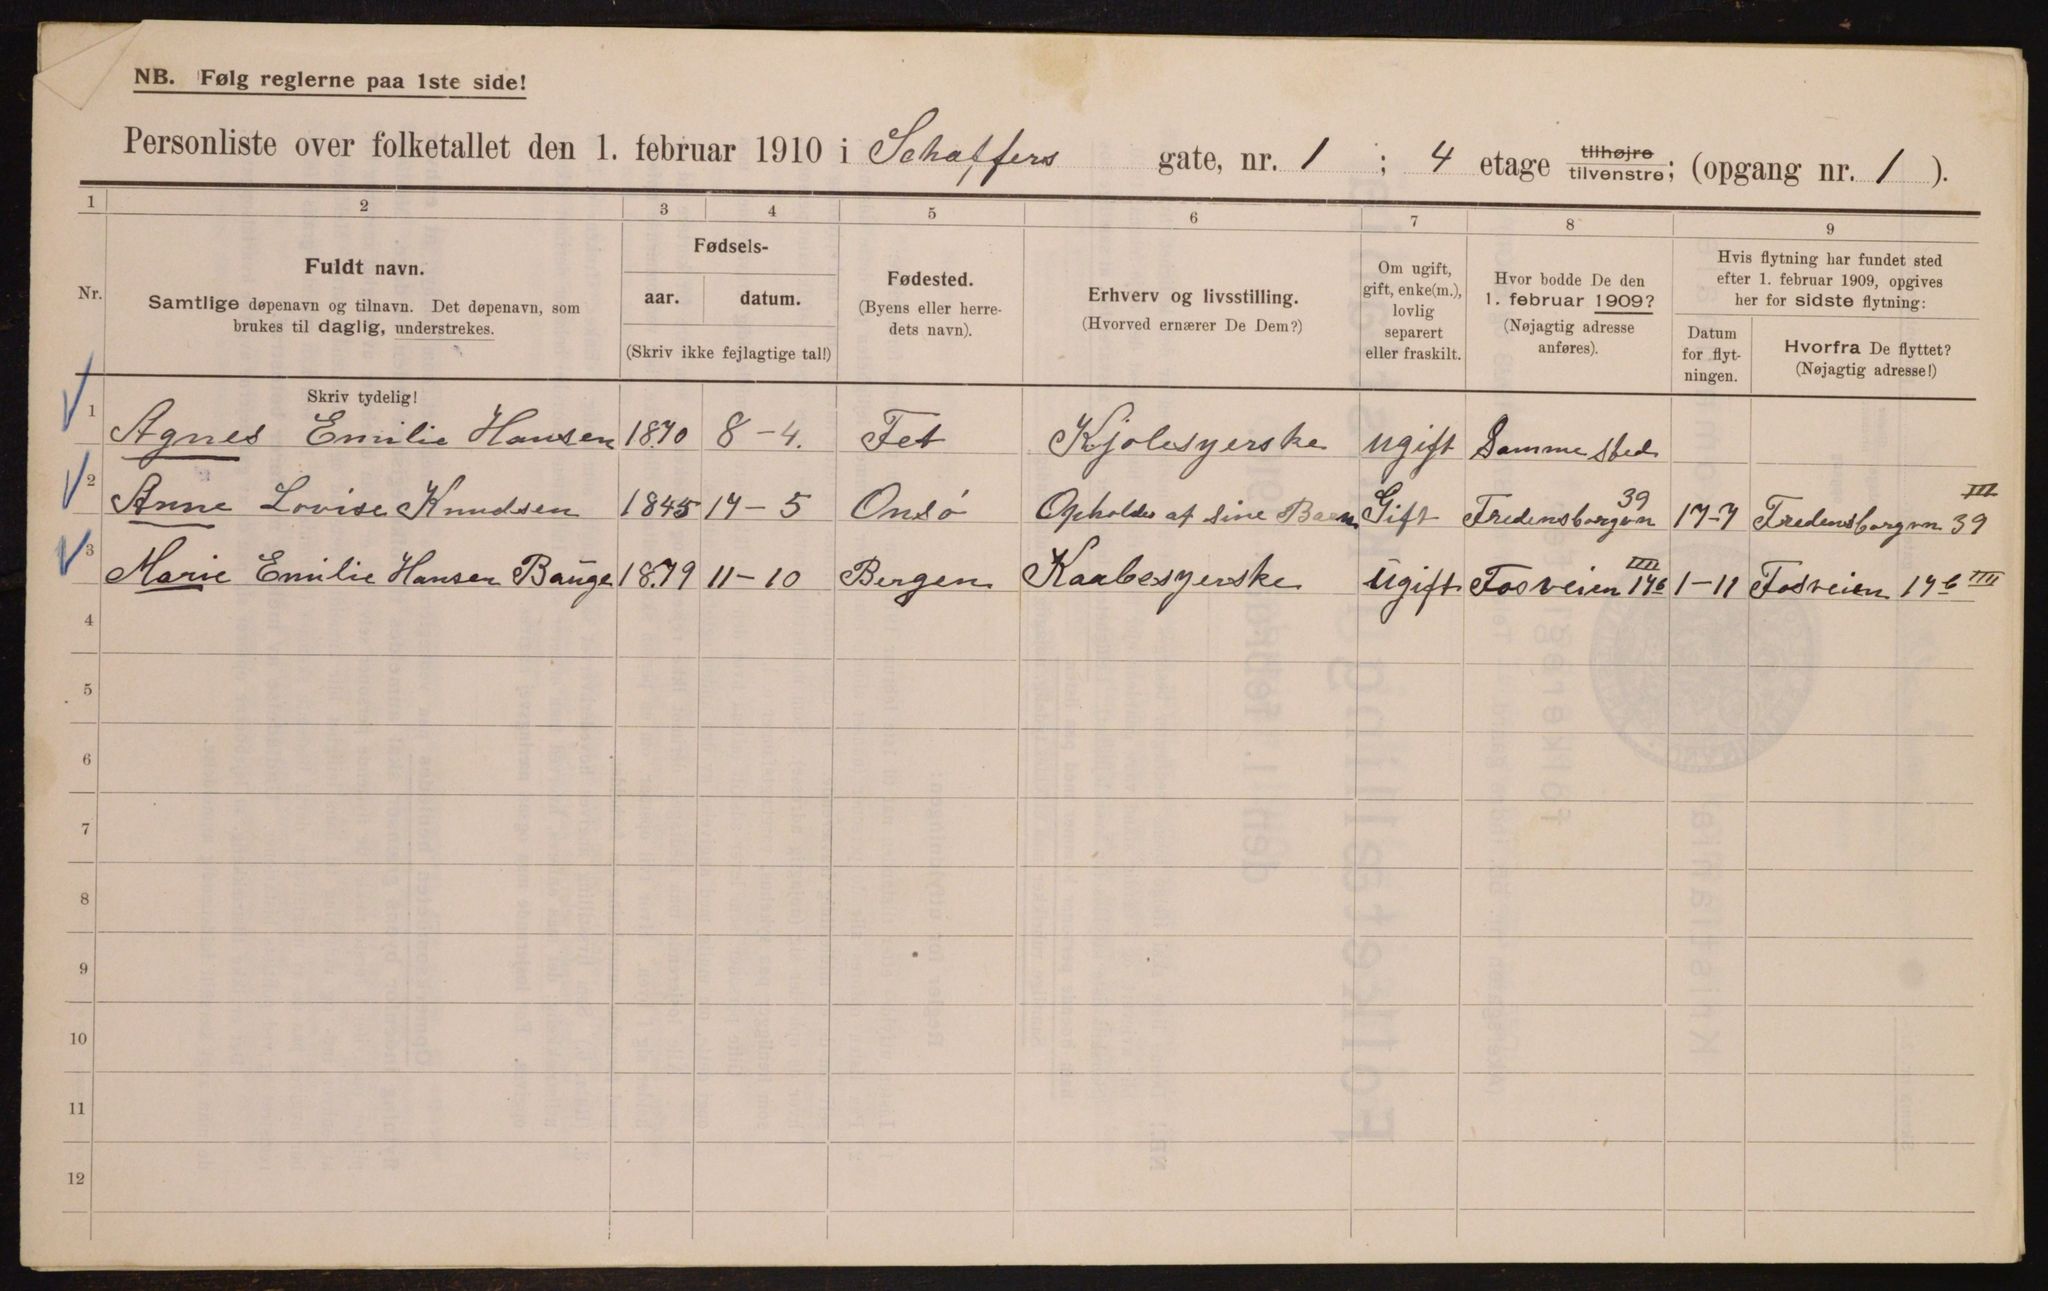 NB. Følg reglerne paa 1ste side!
Personliste over folketallet den 1. februar 1910 i Schaffers gate, nr. 1 ; 4 etage tilhøjre tilvenstre; (opgang nr. 1 ).
1 2 3 4 5 6 7 8 9
Nr.
Fuldt navn.
Samtlige døpenavn og tilnavn. Det døpenavn, som
brukes til daglig, understrekes.
Skriv tydelig!
Fødsels-
aar. datum.
(Skriv ikke fejlagtige tal!)
Fødested.
(Byens eller herre-
dets navn).
Erhverv og livsstilling.
(Hvorved ernærer De Dem?)
Om ugift,
gift, enke(m.),
lovlig
separert
eller fraskilt.
Hvor bodde De den
1. februar 1909?
(Nøjagtig adresse
anføres).
Hvis flytning har fundet sted
efter 1. februar 1909, opgives
her for sidste flytning:
Datum
for flyt-
ningen.
Hvorfra De flyttet?
(Nøjagtig adresse!)
1 Agnes Emilie Hansen 1870 8-4. Fet Kjolesyerske ugift Samme sted
2 Anne Lovise Knudsen 1845 17-5 Onsö Opholdes af sine Barn Gift Fredensborgvn 39 17-7 Fredensborgvn 39 III
3 Marie Emilie Hansen Bauge 1879 11-10 Bergen Kaabesyerske Ugift Fosveien 17b IIII 1-11 Fosveien 17b IIII
4
5
6
7
8
9
10
11
12